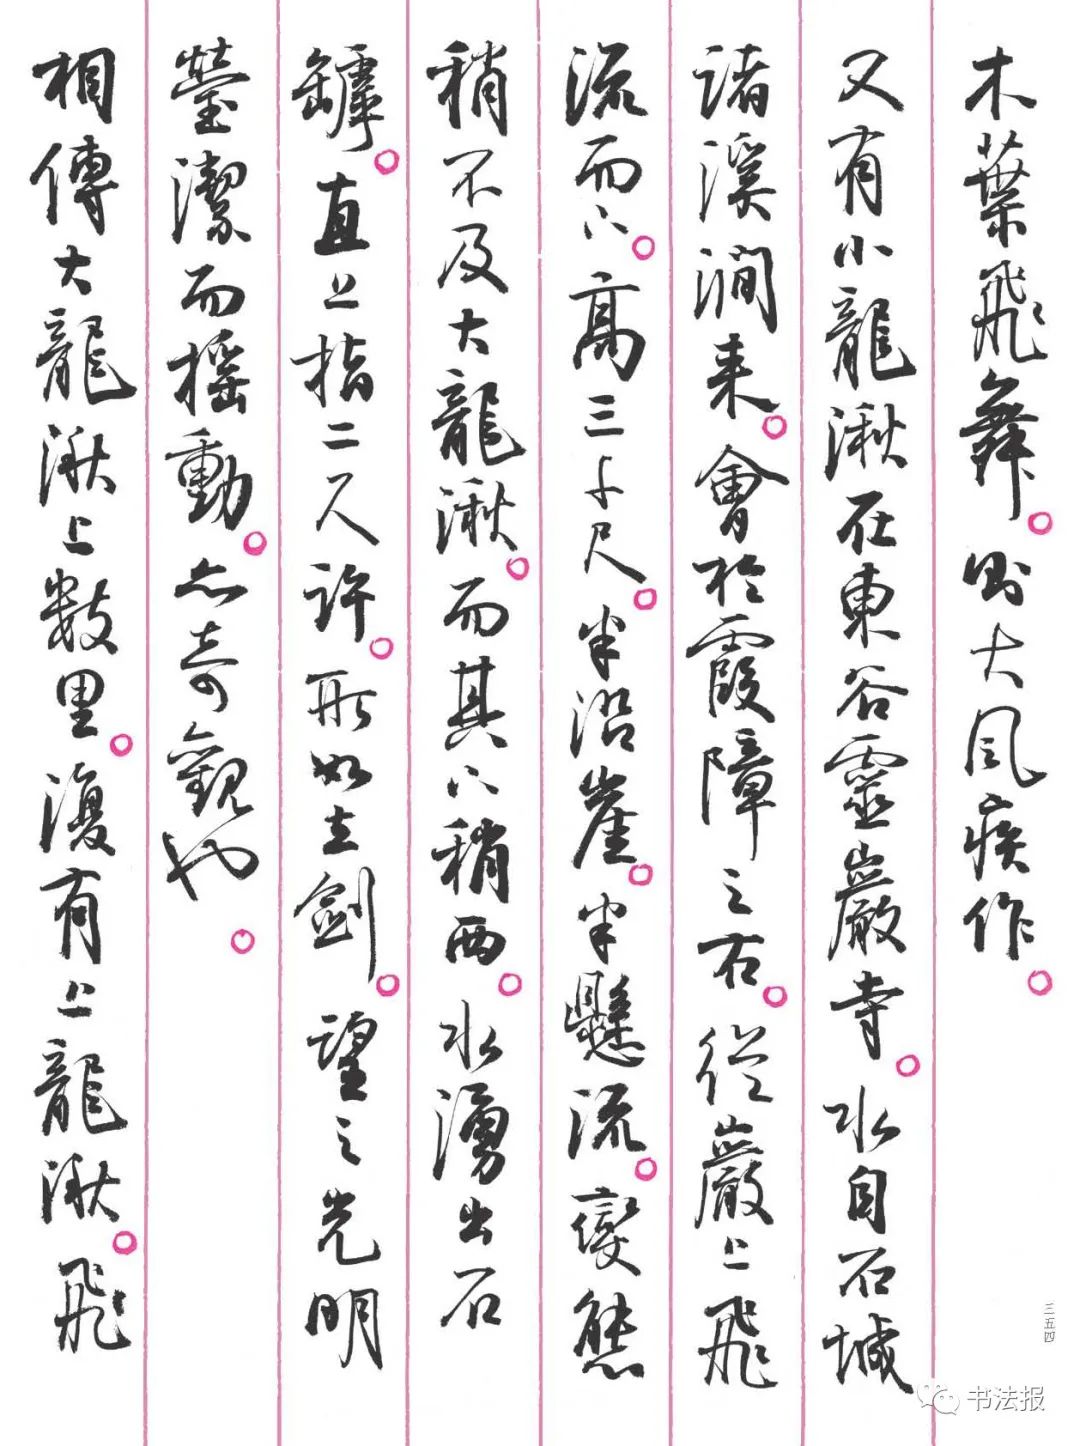 木葉飛舞。則大風疾作。
又有小龍湫在東谷靈巖寺。水自石城
諸溪澗来。會於霞障之右。從巖上飛
流而下。高三千尺。半沿崖。半懸流。變態
稍不及大龍湫。而其下稍西。水湧出石
罅。直上指二人許。形如立劍。望之光明
瑩潔而摇動。亦奇觀也。
相傳大龍湫上數里。復有上龍湫。飛
三五四
书法报